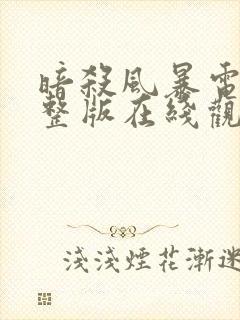 暗殺風暴電
整版在綫觀
淺淺煙花漸迷